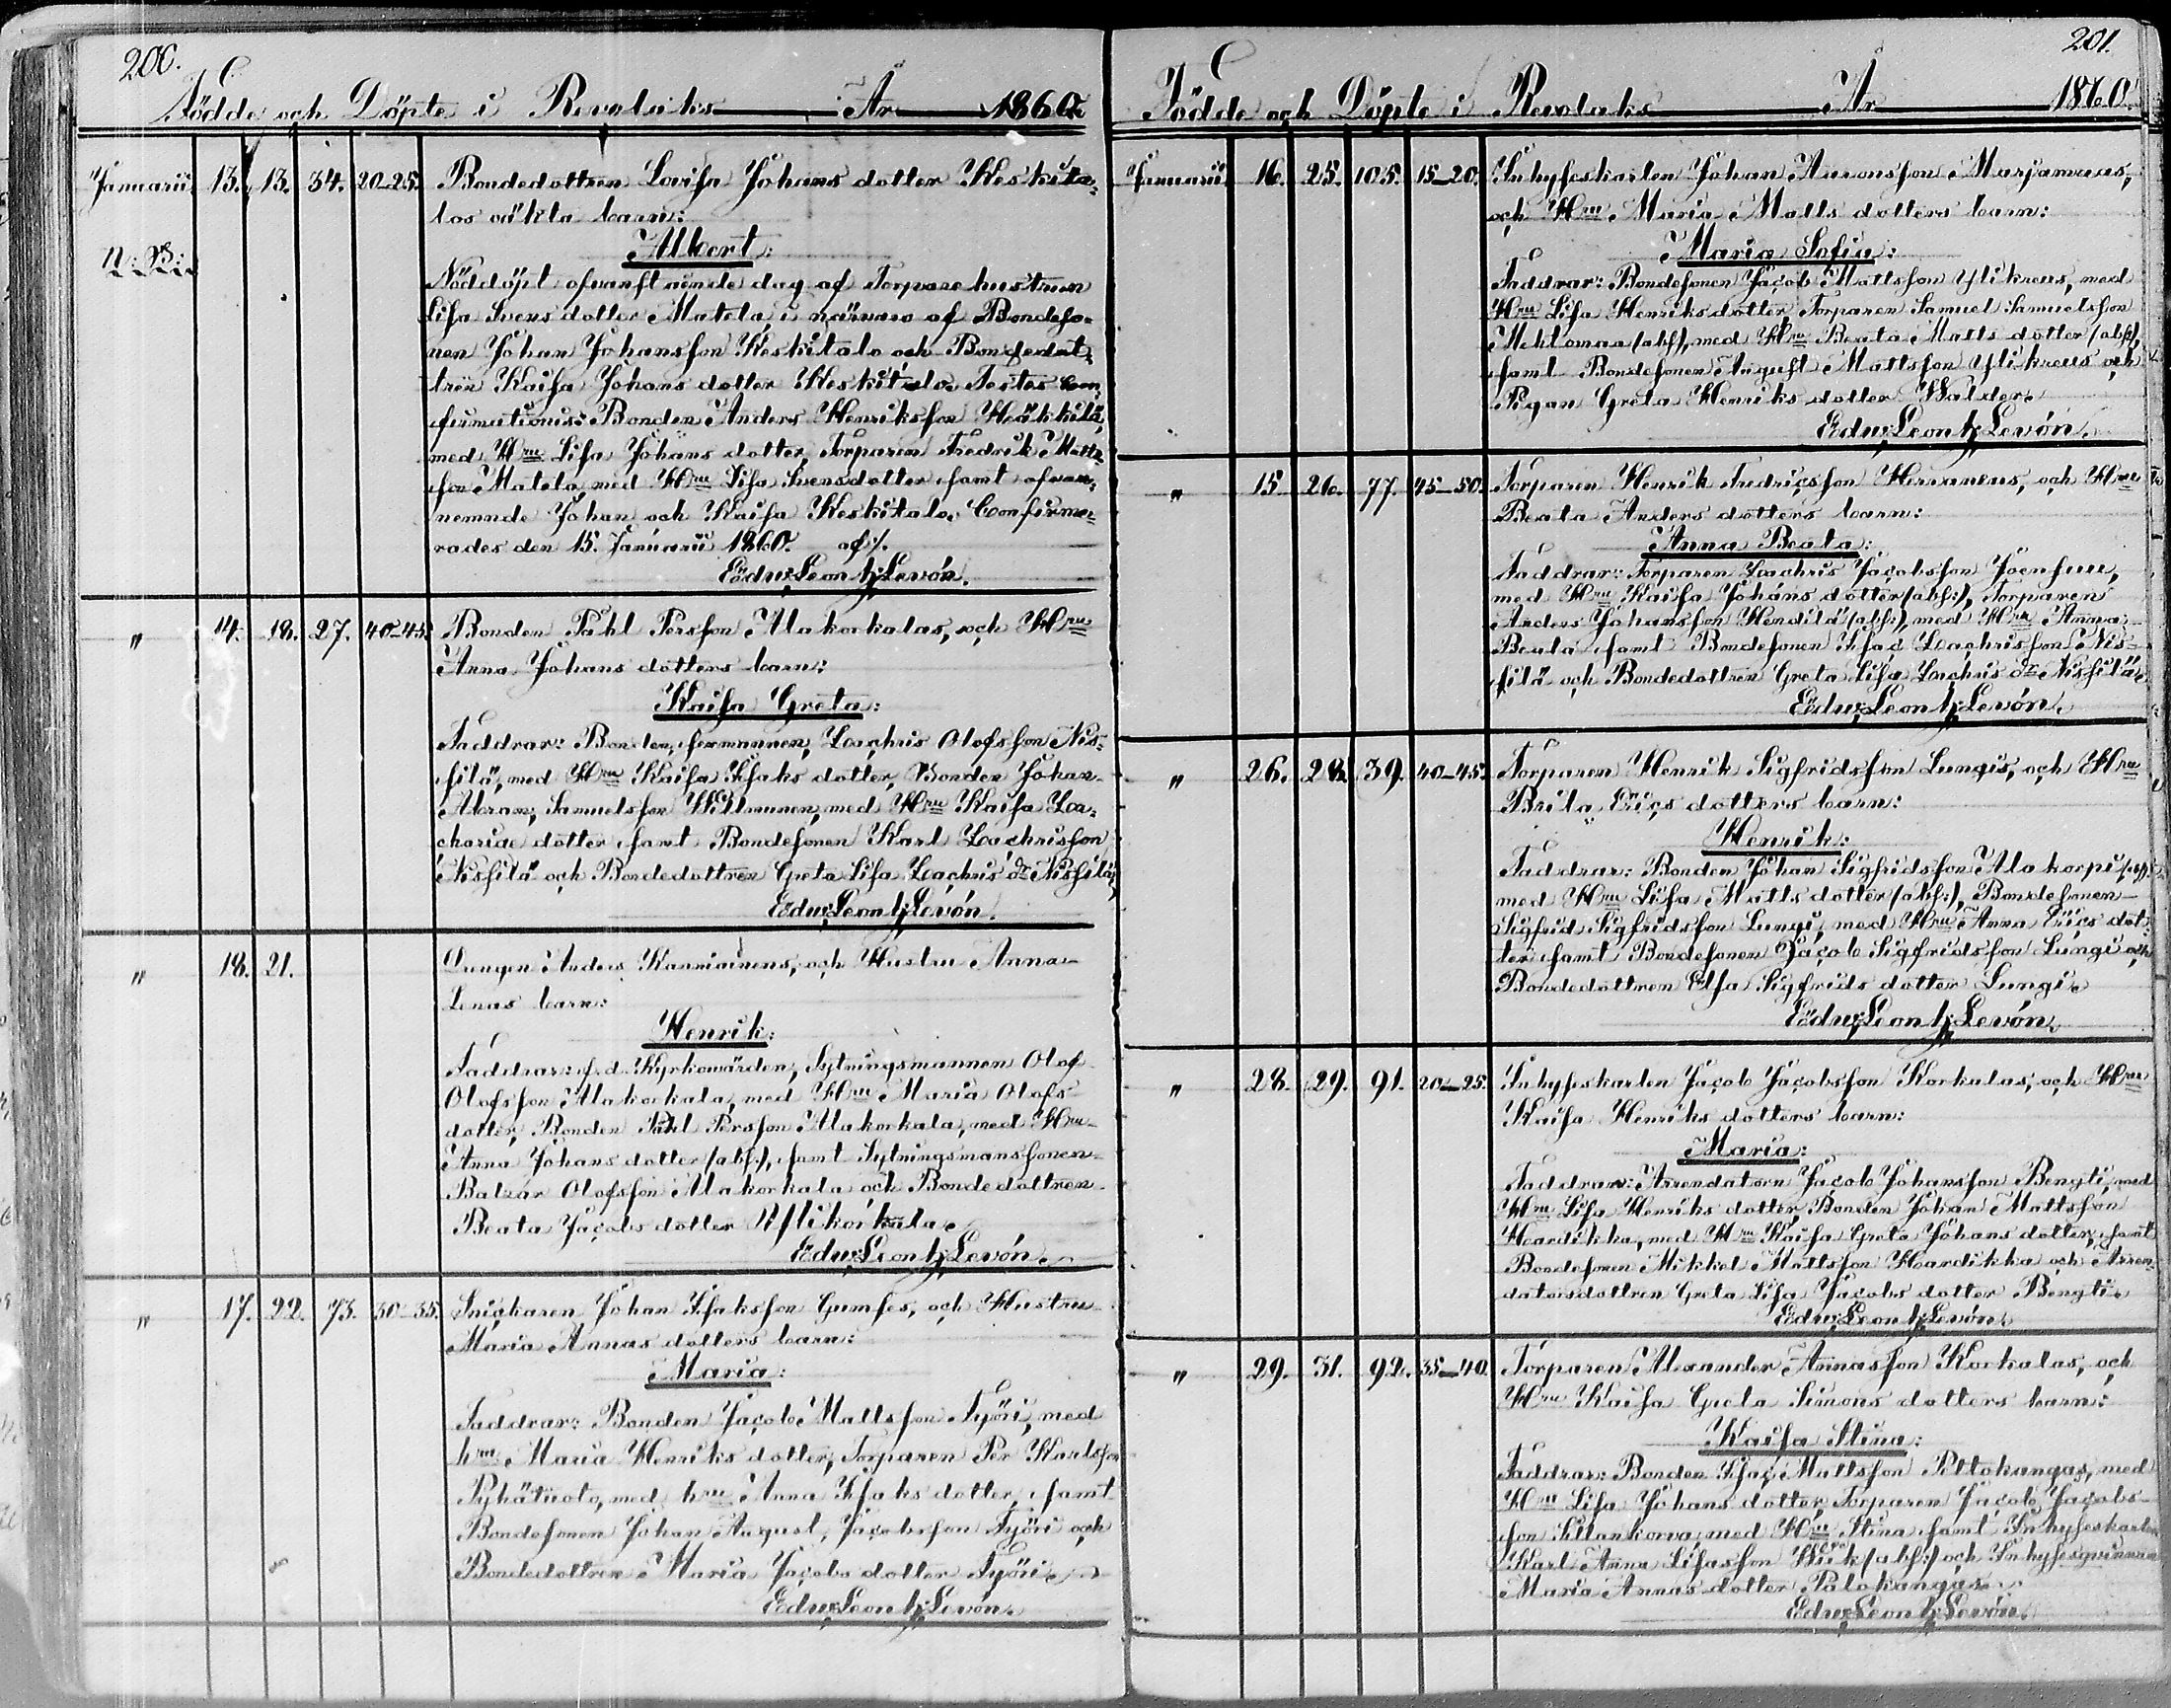 200.
Födde och Döpte i Revolaks År 1860.
Januarii 13. 13. 34. 20-25. Bondedottren Lovisa Johans dotter Keskita-
los oäkta barn:
N:B: Albert:
Nöddöpt ofvanstående dag af Torpare hustrun
Lisa Svens dotter Matela, i närvaro af Bondeso-
nen Johan Johansson Keskitalo och Bondedot-
tren Kaisa Johans dotter Keskitalo. Testes Con-
firmationis: Bonden Anders Henriksson Heikkilä,
med Hru Lisa Johans dotter, Torparen Fredrik Matts-
son Matela, med Hru Lisa Svensdotter, samt ofvan-
nemnde Johan och Kaisa Keskitalo. Confirme-
rades den 15. Januarii 1860. af:/.
Edw: Leon h: Levón.
" 14. 18. 27. 40-45. Bonden Påhl Persson Alakorkalas, och Hru
Anna Johans dotters barn:
Kaisa Greta:
Faddrar: Bonden, sexmannen, Zachris Olofsson Nis-
silä, med Hru Kaisa Isaks dotter, Bonden Johan
Abram, Samuelsson Willmunen, med Hru Kaisa Za-
chariæ dotter, samt Bondesonen Karl Zachrisson
Nissilä och Bondedottren Greta Lisa Zachris dr Nissilä.
Edw: Leon h: Levón.
" 18. 21. Drängen Anders Karmiainens, och Hustru Anna
Lenas barn:
Henrik:
Faddrar: f. d. Kyrkovärden, Sytningsmannen Olof
Olofsson Alakorkala, med Hru Maria Olofs
dotter, Bonden Påhl Persson Alakorkala, med Hru
Anna Johans dotter (abs:), samt Sytningsmanssonen
Balzar Olofsson Alakorkala och Bondedottren
Beata Jacobs dotter Ylikorkala.
Edw: Leon h: Levón.
" 17. 22. 73. 30-35. Snickaren Johan Isaksson Gumses, och Hustru
Maria Annas dotters barn:
Maria:
Faddrar: Bonden Jacob Mattsson Työri, med
hru Maria Henriks dotter, Torparen Per Karlsson
Pyhätuoto, med hru Anna Isaks dotter, samt
Bondesonen Johan August, Jacobsson Työri och
Bondedottren Maria Jacobs dotter Työri.
Edw: Leon h: Levón.
201.
Födde och Döpte i Revolaks År 1860.
Januarii 16. 25. 105. 15-20. Inhyseskarlen Johan Aaronsson Marjamaas,
och Hru Maria Matts dotters barn:
Maria Sofia:
Faddrar: Bondesonen Jacob Mattsson Ylikreus, med
Hru Lisa Henriks dotter, Torparen Samuel Samuelsson
Mehlomaa (abs), med Hru Beata Matts dotter (abs),
samt Bondesonen August Mattsson Ylikreus och
Pigan Greta Henriks dotter Walder.
Edw: Leon h: Levón.
" 15 26. 77. 45-50. Torparen Henrik Fredricsson Herranens, och Hru
Beata Anders dotters barn:
Anna Beata:
Faddrar: Torparen Zachris Jacobsson Joensuu,
med Hru Kaisa Johans dotter (abs:), Torparen
Anders Johansson Hendilä (abs:), med Hru Anna
Beata, samt Bondesonen Isac Zachrisson Nis-
silä och Bondedottren Greta Lisa Zachris dr Nissilä.
Edw: Leon h: Levón.
" 26. 28. 39. 40-45. Torparen Henrik Sigfridsson Lungis, och Hru
Brita Erics dotters barn:
Henrik:
Faddrar: Bonden Johan Sigfridsson Alakorpi (abs),
med Hru Lisa Matts dotter (abs:), Bondesonen
Sigfrid Sigfridsson Lungi, med Hru Anna Erics dot-
ter, samt Bondesonen Jacob Sigfridsson Lungi och
Bondedottren Elsa Sigfrids dotter Lungi.
Edw: Leon h: Levón.
" 28. 29. 91. 20-25. Inhyseskarlen Jacob Jacobsson Korkalas, och Hru
Kaisa Henriks dotters barn:
Maria:
Faddrar: Arrendatorn Jacob Johansson Bengti, med
Hru Lisa Henriks dotter, Bonden Johan Mattsson
Hardikka, med Hru Kaisa Greta Johans dotter, samt
Bondesonen Mikkel Mattsson Hardikka och Arren-
datorsdottren Greta Lisa Jacobs dotter Bengti.
Edw: Leon h: Levón.
" 29. 31. 92. 35-40. Torparen Alexander Annasson Korkalas, och
Hru Kaisa Greta Simons dotters barn:
Kaisa Stina:
Faddrar: Bonden Isac Mattsson Peltokangas, med
Hru Lisa Johans dotter, Torparen Jacob Jacobs-
son Sillankorva, med Hru Stina, samt Inhyseskarlen
Karl Anna Lisasson (abs:) och Inhysesqvinnan
Maria Annas dotter Palokangas.
Edw: Leon h: Levón.